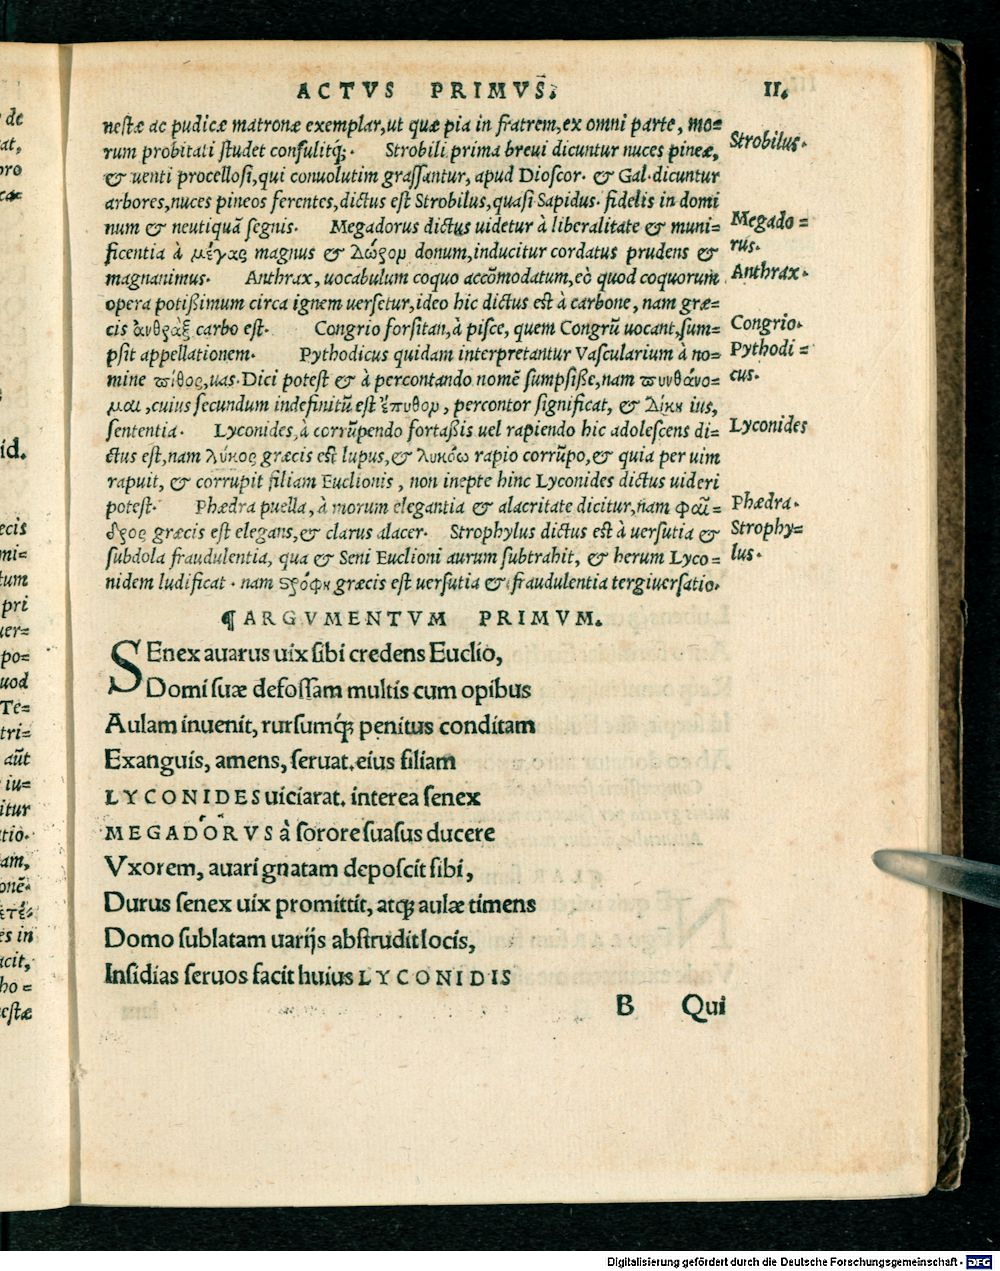 ACTVS PRIMVS. II.
nestæ ac pudicæ matronæ exemplar, ut quæ pia in fratrem, ex omni parte, mo=
rum probitati studet consulitq́;. Strobili prima breui dicuntur nuces pineæ,
Strobilus.
& uenti procellosi, qui conuolutim grassantur, apud Dioscor. & Gal. dicuntur
arbores, nuces pineos ferentes, dictus est Strobilus, quasi Sapidus. fidelis in domi
num & neutiquā segnis. Megadorus dictus uidetur à liberalitate & muni=
Megado=
ficentia à μέγας magnus & Δώρον donum, inducitur cordatus prudens &
rus.
magnanimus. Anthrax, uocabulum coquo accōmodatum, eò quod coquorum
Anthrax.
opera potißimum circa ignem uersetur, ideo hic dictus est à carbone, nam græ=
cis ἄνθραξ carbo est. Congrio forsitan, à pisce, quem Congrū uocant, sum=
Congrio.
psit appellationem. Pythodicus quidam interpretantur Vascularium à no=
Pythodi=
mine πίθος, uas. Dici potest & à percontando nomē sumpsiße, nam πυνθάνο=
cus.
μαι, cuius secundum indefinitū est ἔπυθον, percontor significat, & Δίκη ius,
sententia. Lyconides, à corrūpendo fortaßis uel rapiendo hic adolescens di=
Lyconides
ctus est, nam λύκος græcis est lupus, & λυκόω rapio corrūpo, & quia per uim
rapuit, & corrupit filiam Euclionis, non inepte hinc Lyconides dictus uideri
potest. Phædra puella, à morum elegantia & alacritate dicitur, nam φαῖ=
Phædra.
δρος græcis est elegans, & clarus alacer. Strophylus dictus est à uersutia &
Strophy=
subdola fraudulentia, qua & Seni Euclioni aurum subtrahit, & herum Lyco=
lus.
nidem ludificat. nam στρόφη græcis est uersutia & fraudulentia tergiuersatio.
¶ ARGVMENTVM PRIMVM.
SEnex auarus uix sibi credens Euclio,
Domi suæ defossam multis cum opibus
Aulam inuenit, rursumq́; penitus conditam
Exanguis, amens, seruat. eius filiam
LYCONIDES uiciarat. interea senex
MEGADORVS à sorore suasus ducere
Vxorem, auari gnatam deposcit sibi,
Durus senex uix promittit, atq; aulæ timens
Domo sublatam uarijs abstrudit locis,
Insidias seruos facit huius LYCONIDIS
B Qui
Digitalisierung gefördert durch die Deutsche Forschungsgemeinschaft - DFG